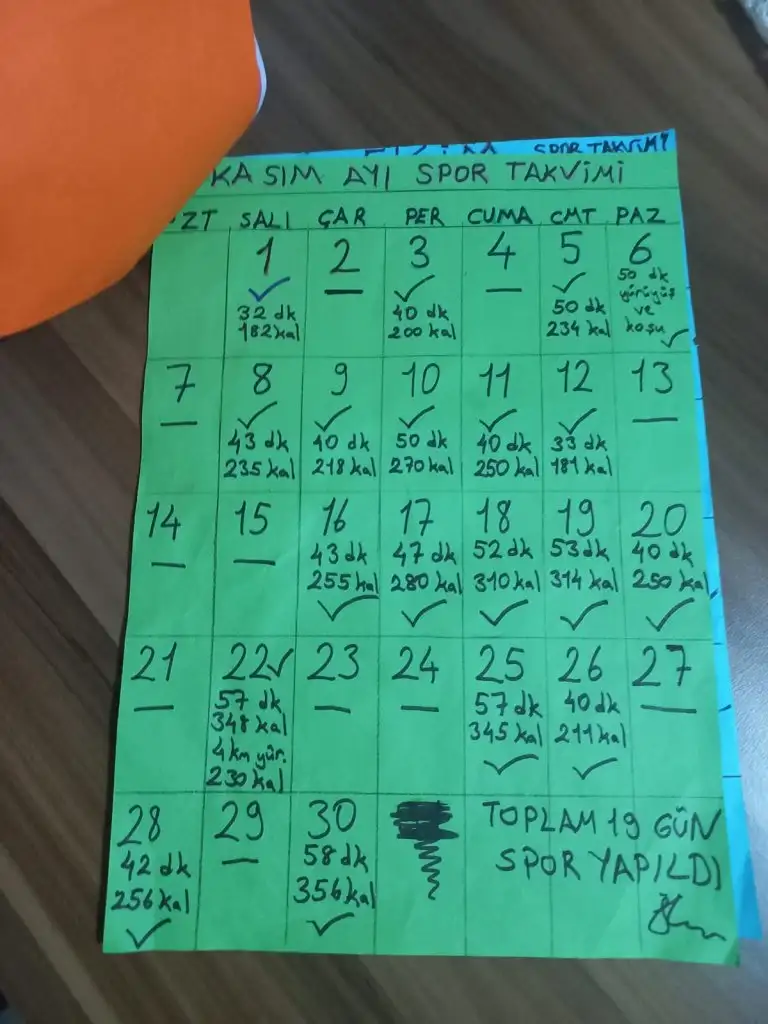 SPOR TAKVİMİ
KASIM AYI SPOR TAKVİMİ
ZT SALI ÇAR PER CUMA CMT PAZ
1 2 3 4 5 6
32 dk
182 kal
40 dk
200 kal
50 dk
234 kal
50 dk
yürüyüş
ve
koşu
7 8 9 10 11 12 13
43 dk 40 dk 50 dk 40 dk 33 dk
235 kal 218 kal 270 kal 250 kal 181 kal
14 15 16 17 18 19 20
43 dk 47 dk 52 dk 53 dk 40 dk
255 kal 280 kal 310 kal 314 kal 250 kal
21 22 23 24 25 26 27
57 dk
348 kal
4 km yür.
230 kal
57 dk
345 kal
40 dk
211 kal
28 29 30
42 dk
256 kal
58 dk
356 kal
TOPLAM 19 GÜN
SPOR YAPILDI